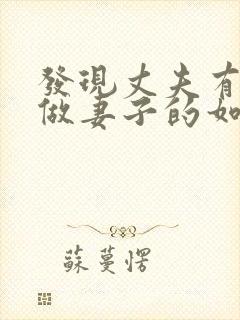 發現丈夫有
做妻子的如
蘇蔓愣